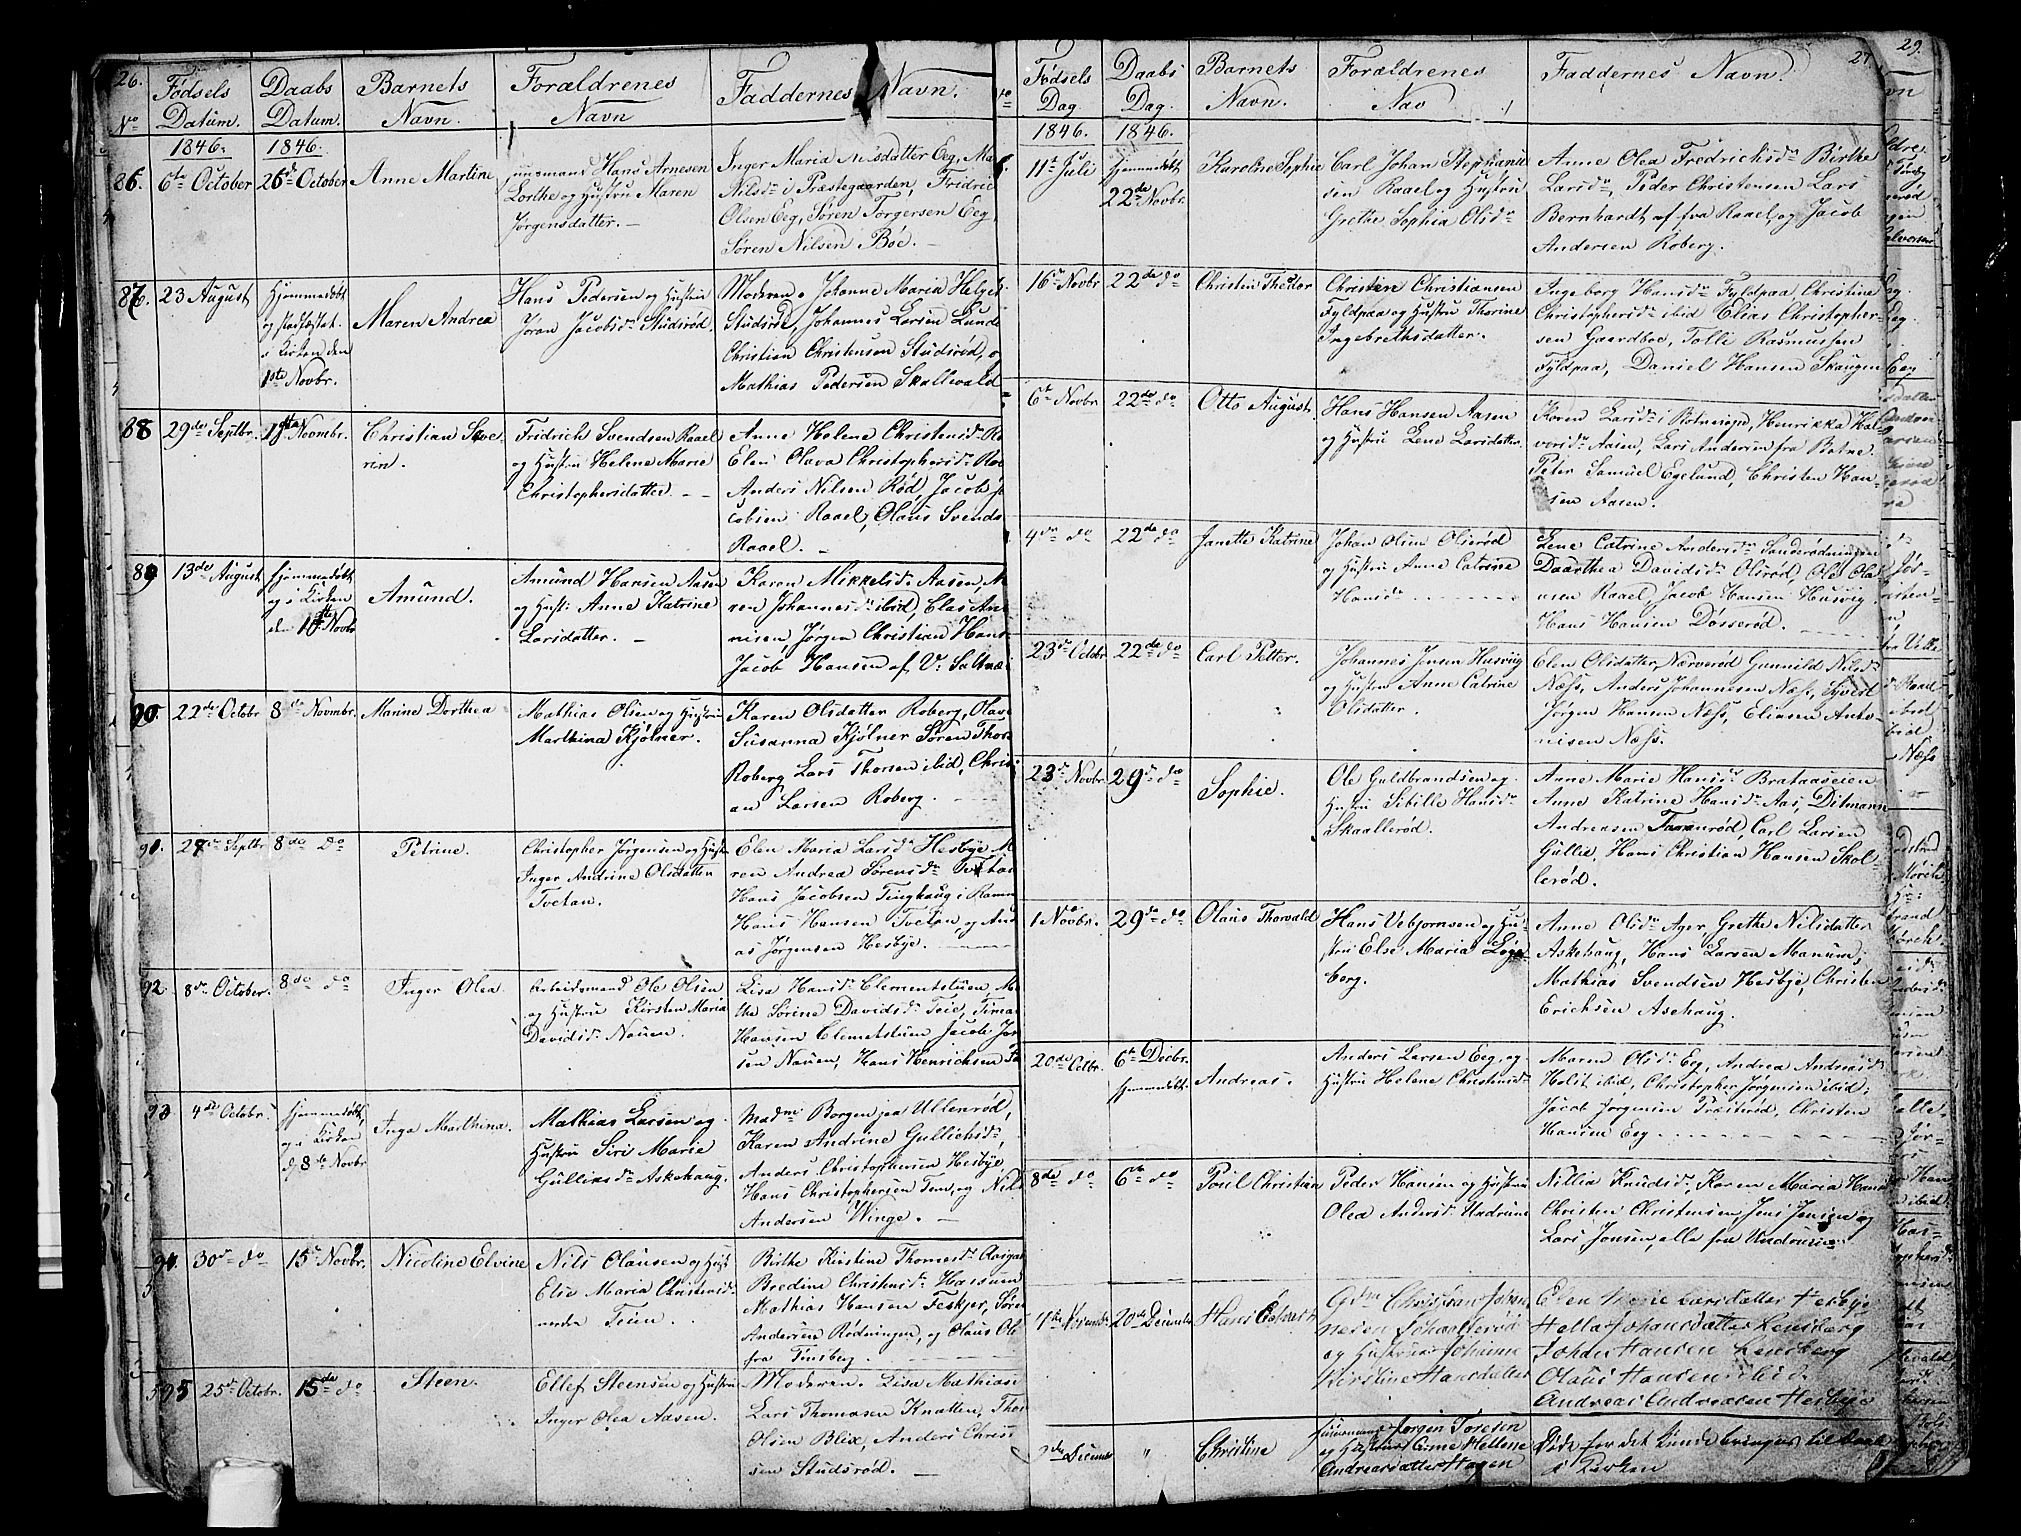 26.
Fødsels Daabs Barnets Forældrenes Faddernes Navn.
No Datum. Datum. Navn. Navn
1846. 1846.
86. 6te October 26de October Anne Martine
Huusmand Hans Arnesen
Lorthe og Hustru Maren
Jørgensdatter. —
Inger Maria Nilsdatter Eeg, Ma
Nilsdr i Præstegaarden, Fridric
Olsen Eeg, Søren Torgersen Eeg,
Søren Nilsen Böe. —
87. 23 August
Hjemmedøbt
og stadfæstet
i Kirken den
1ste Novbr.
Maren Andrea
Hans Pedersen og Hustru
Jøran Jacobsdr Studsrød.
Moderen, Johanne Maria Helges
Studsrød, Johannes Larsen Lunde
Christian Christensen Studsrød, o
Mathias Pedersen Skallevald
88 29de Septbr. 1ste Novmbr. Christian Seve
rin.
Fridrich Svendsen Raael
og Hustru Helene Marie
Christophersdatter. — —
Anne Helene Christensdr Ra
Elen Olava Christophersdr Ra
Anders Nilsen Rød, Jacob Ja
cobsen Raael, Olaus Svends
Raael. —
89 13de August
Hjemmedøbt
og i Kirken
den 1ste Novbr
Amund.
Amund Hansen Aasen
og Hustr: Anne Katrine
Larsdatter. —
Karen Mikkelsdr Aasen, M
ren Johannesdr ibid, Elas An
nisen, Jørgen Christian Hans
Jacob Hansen af V: Saltnæs
90. 22de Octobr 8de Novmbr. Marine Dorthea
Mathias Olsen og Hustru
Marthina Kjølner.
Karen Olsdatter Roberg, Olave
Susanna Kjølner Søren Thor
Roberg Lars Thorsen ibid, Christ
an Larsen Roberg. —
91. 27de Septbr 8de do Petrine.
Christopher Jørgensen og Hustru
Inger Andrine Olsdatter
Tvetan.
Elen Maria Larsdr Hesbye M
ren Andrea Sørensdr Tveta
Hans Jacobsen Tinghaug i Ramn
Hans Hansen Tvetan, og And
as Jørgensen Hesbye. —
92. 8de October. 8de do Inger Olea.
Arbeidsmand Ole Olsen
og Hustru Kirsten Maria
Davidsdr Nauen.
Lisa Hansdr Clementstuen M
the Sørine Davidsdr Teie, Tima
Hansen Clemetstuen, Jacob Jør
sen Nauen, Hans Henrichsen
93 4de Octobr.
Hjemmedøbt
og i Kirken
d: 8de Novbr
Inga Marthina.
Mathias Larsen og
Hustru Siri Marie
Gulliksdr Askehaug.
Madm Borgen paa Ullenrød,
Karen Andrine Gullichsdr,
Anders Christophersen Hesbye,
Hans Christophersen Tem, og Nils
Andersen Winge. —
94. 30de do 15de Novbr. Nicoline Elvine
Nils Olausen og Hust
Elise Maria Christensdr
nedre Teien.
Birthe Kirstine Thomasdr Aasgaa
Bredine Christensdr Hassum
Mathias Hansen Feskjer, Søren
Andersen Rødningen, og Olaus Ole
fra Tønsberg.
595 25de Octobr. 15de do Steen.
Ellef Steensen og Hustru
Inger Olea Aasen.
Moderen. Lisa Mathias
Lars Thomasen Knatten, Thor
Olsen Blix, Anders Christ
sen Studsrød. —
27
Fødsels Daabs Barnets Forældrenes Faddernes Navn.
Dag. Dag. Navn. Nav
1846. 1846.
11te Juli
Hjemmedøbt
22de Novbr.
Karoline Sophie
Carl Johan Stephanus
sen Raael og Hustru
Grethe Sophia Olsdr
Anne Olea Fredrichsdr Birthe
Larsdr, Peder Christensen Lars
Bernhardt af fra Raael, og Jacob
Andersen Roberg.
16de Novbr 22de do Christen Theodor
Christen Christiansen
Fyldpaa og Hustru Thorine
Ingebrethsdatter.
Ingeborg Hansdr Fyldpaa Christine
Christophersdr ibid Elias Christopher-
sen Gaardboe, Tolle Rasmussen
Fyldpaa, Daniel Hansen Skaugen
6te Novbr 22de do Otto August
Hans Hansen Aasen
og Hustru Lene Larsdatter.
Karen Larsdr i Botnesogn, Henrikka Hal
vorsdr Aasen, Lars Andersen fra Botne
Peter Samuel Egelund, Christen Han-
sen Aasen.
4de do 22de do Janette Katrine
Johan Olsen Olsrød
og Hustru Anne Catrine
Hansdr
Lene Catrine Andersdr Sanderødningen
Daarthea Davidsdr Olsrød, Ole Ola
usen Raael, Jacob Hansen Husvig
Hans Hansen Døsserød.
23de Octobr 22de do Carl Petter.
Johannes Jensen Husvig
og Hustru Anne Catrine
Olsdatter.
Elen Olsdatter Nærverød Gunnild Nilsdr
Næss, Anders Johannesen Næss, Syvert
Jørgen Hansen Næss, Eliasen Anto-
nisen Næss.
23de Novbr 29de do Sophie.
Ole Guldbrandsen og
Hustru Sibille Hansdr
Skaallerød.
Anne Marie Hansdr Brataaseien
Anne Katrine Hansdr Aas, Ditmann
Andreasen Taranrød, Carl Larsen
Gullie, Hans Christian Hansen Skol
lerød.
1 Novbr. 29de do Olaus Thorvald
Hans Vebjørnsen og Hu-
stru Else Maria Løge-
berg.
Anne Olsdr Ager, Grethe Nilsdatter
Askehaug, Hans Larsen Manum,
Mathias Svendsen Hesbye, Christen
Erichsen Asehaug.
20de Octbr.
6te Decbr.
Hjemmedøbt
Andreas.
Anders Larsen Eeg, og
Hustru Helene Christensdr
Maren Olsdr Eeg, Andrea Andreasdr
Holst ibid, Christopher Jørgensen ibid,
Jacob Jørgensen Træsterød, Christen
Hansen Eeg
8de do 6te do Poul Christian
Peder Hansen og Hustru
Olea Andersdr Undrum
Nillia Knudsdr, Karen Maria Hansdr
Christen Christensen Jens Jensen og
Lars Jansen, alle fra Undrum
20de Decembr Hans
Gdm Christian Johan
nesen Skaallerød
og Hustrue Johanne
Kirstine Hansdatter
Elen Marie Larsdatter Hesbye
Hella Johansdatter Lensberg
Johan Hansen Lensberg
Olaus Hansen ibid.
Andreas Andreasen Hesbye
Decembr " Christine
Huusmand Jørgen Toresen
og Hustrue Anne Hellene
Andreasdatter Hagen
Døde før det kunde bringes til daab
i Kirken
29.